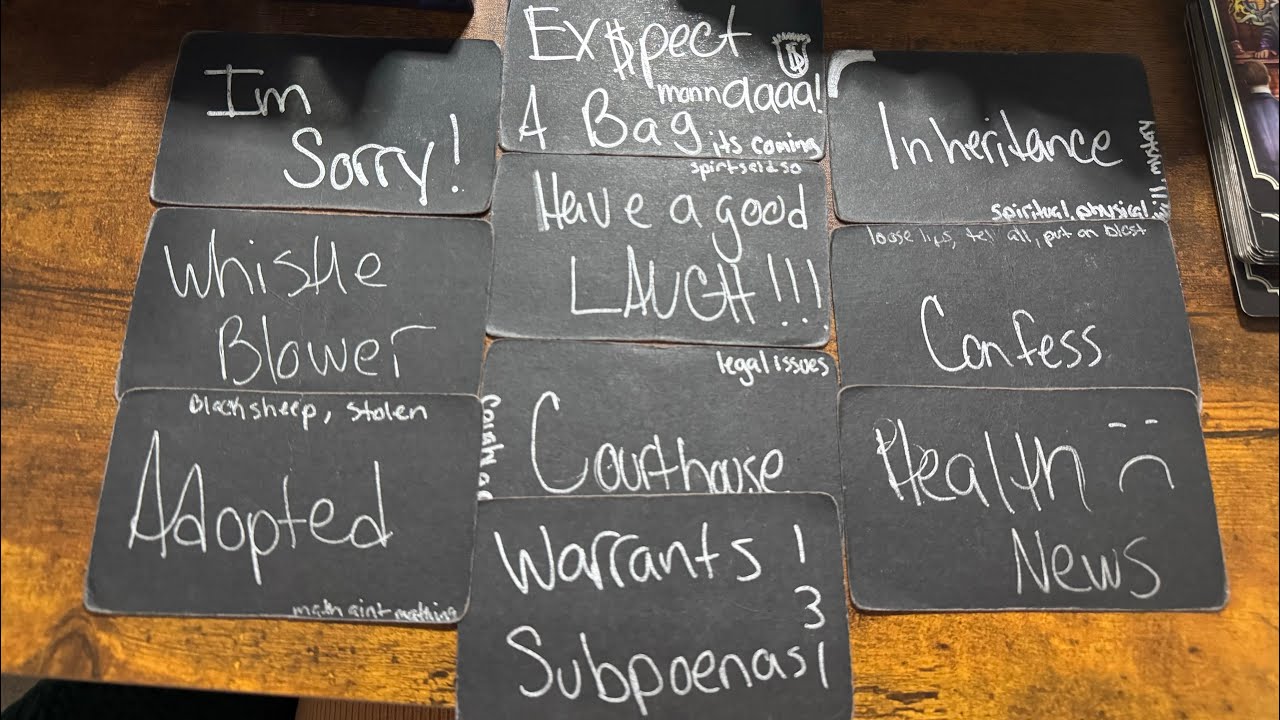 Im
Sorry!
Whistle
Blower
Black sheep, stolen
Adopted
math aint mathing
Ex$pect
mannaaaa!
A Bag its coming
spirit said so
Have a good
LAUGH!!!
legal issues
Courthouse
Warrants 1
3
Subpoenas 1
Inheritance
spiritual, physical
loose lips, tell all, put on blast
Confess
Health :(
News